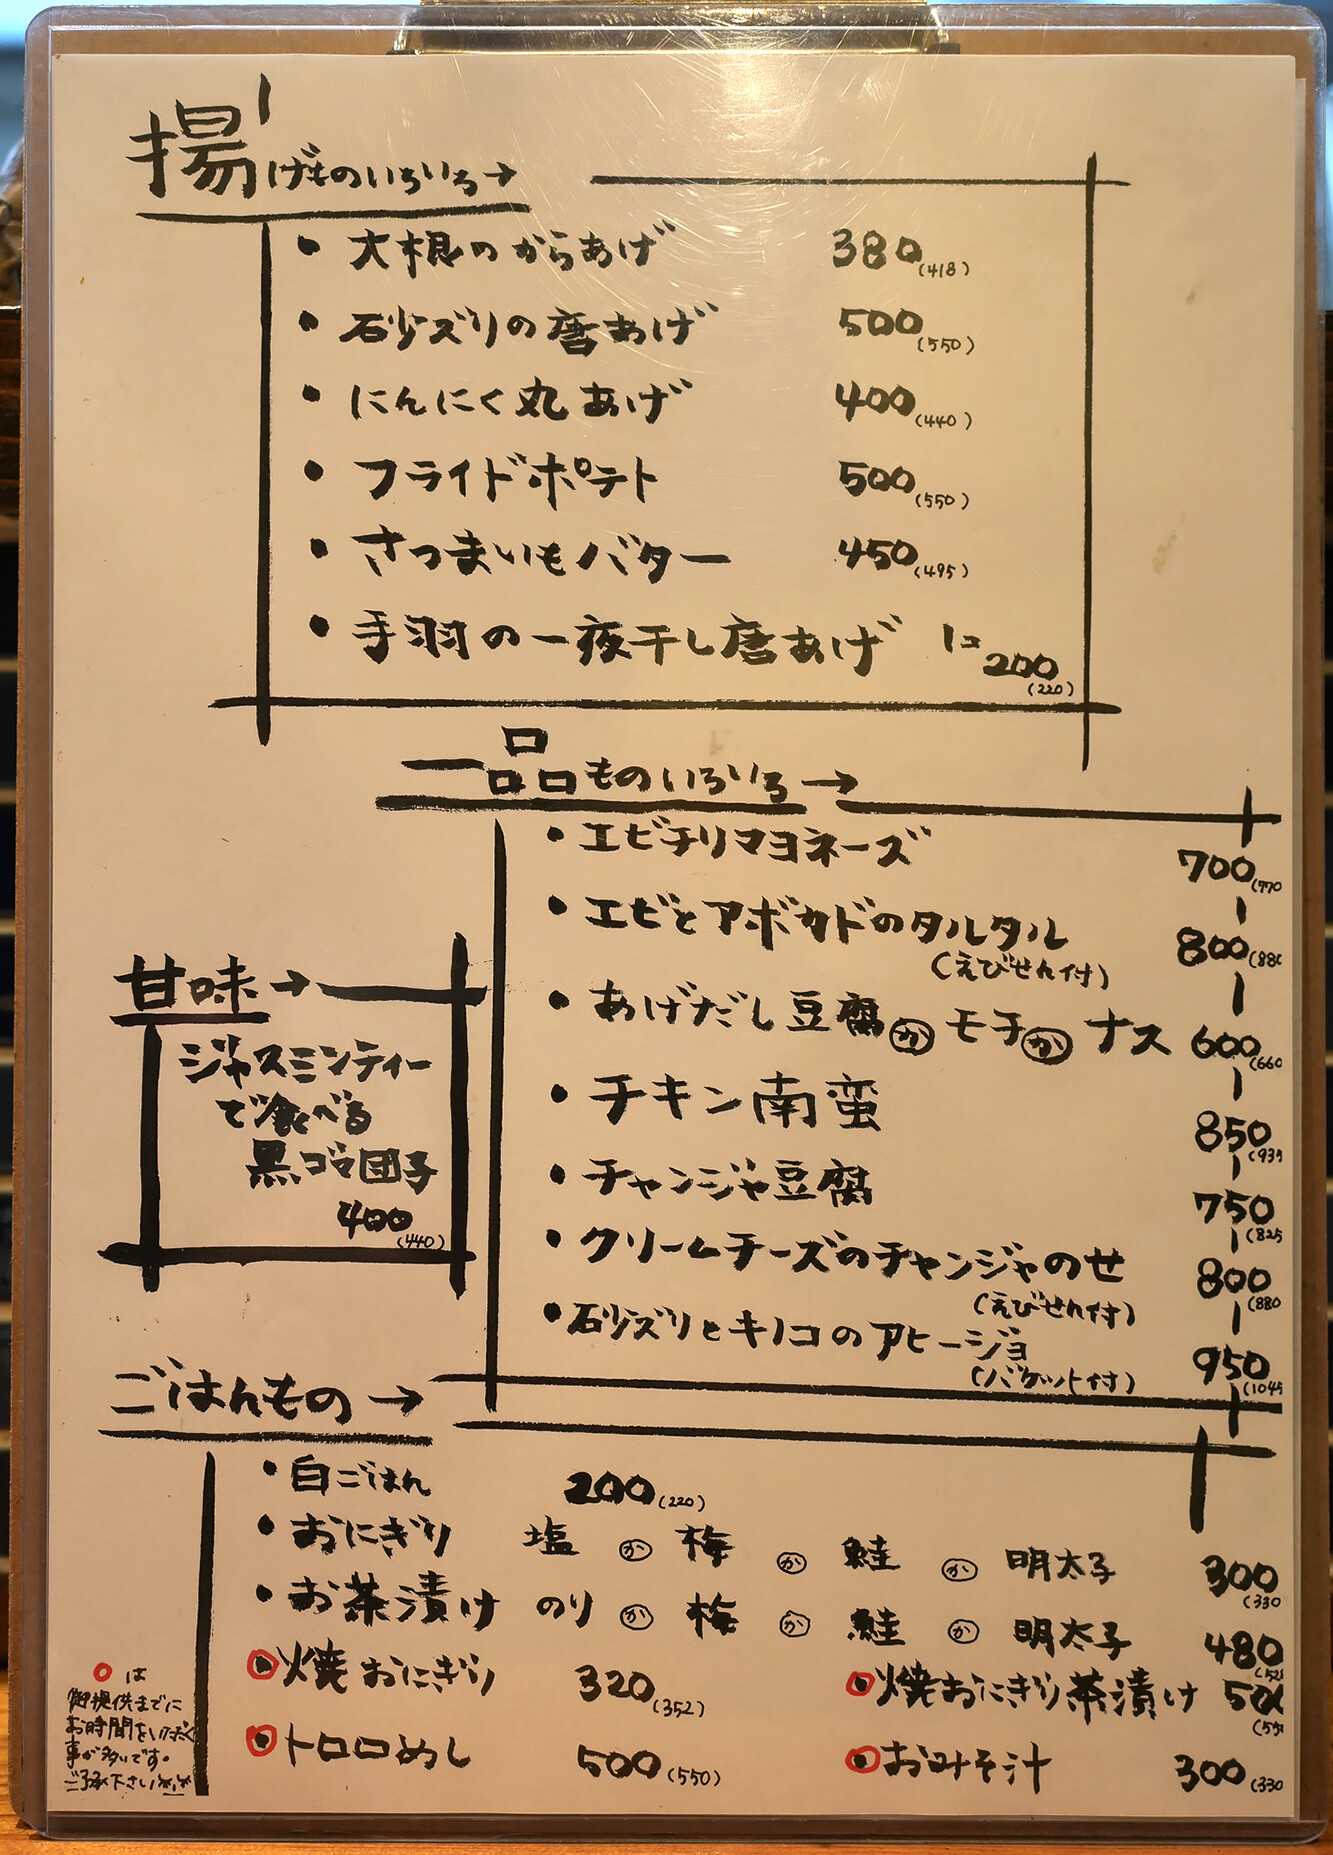 揚げものいろいろ→
・大根のからあげ 380(418)
・石少ズリの唐あげ 500(550)
・にんにく丸あげ 400(440)
・フライドポテト 500(550)
・さつまいもバター 450(495)
・手羽の一夜干し唐あげ 1コ 200(220)
一品ものいろいろ→
・エビチリマヨネーズ 700(770
・エビとアボカドのタルタル 800(880
(えびせん付)
・あげだし豆腐かモチかナス 600(660
・チキン南蛮 850(935
・チャンジャ豆腐 750(825
・クリームチーズのチャンジャのせ 800(880
(えびせん付)
・砂ズリとキノコのアヒージョ 950(1045
(バケット付)
甘味→
ジャスミンティー
で食べる
黒ゴマ団子
400(440)
ごはんもの→
・白ごはん 200(220)
・おにぎり 塩か梅か鮭か明太子 300(330
・お茶漬け のりか梅か鮭か明太子 480(528
・焼おにぎり 320(352)
・焼おにぎり茶漬け 500(550
・トロロめし 500(550)
・おみそ汁 300(330
○は
御提供までに
お時間をいただく
事が多いです。
ご了承下さいませ